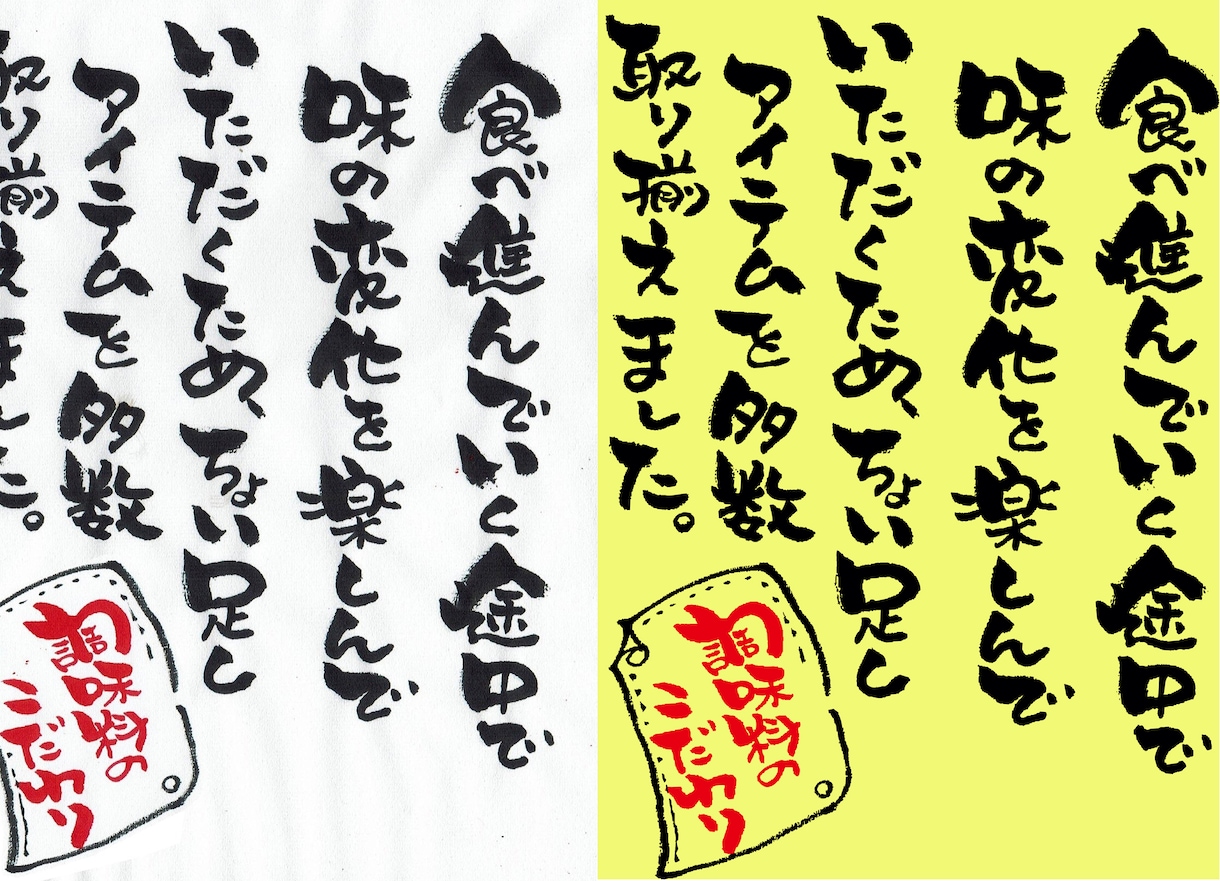 食べ進んでいく途中で
味の変化を楽しんで
いただくため、ちょい足し
アイテムを多数
取り揃えました。
調味料の
こだわり
食べ進んでいく途中で
味の変化を楽しんで
いただくため、ちょい足し
アイテムを多数
取り揃えました。
調味料の
こだわり